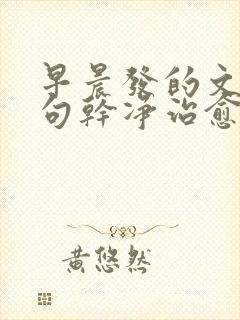 早晨發的文
句幹凈治愈
黃悠然